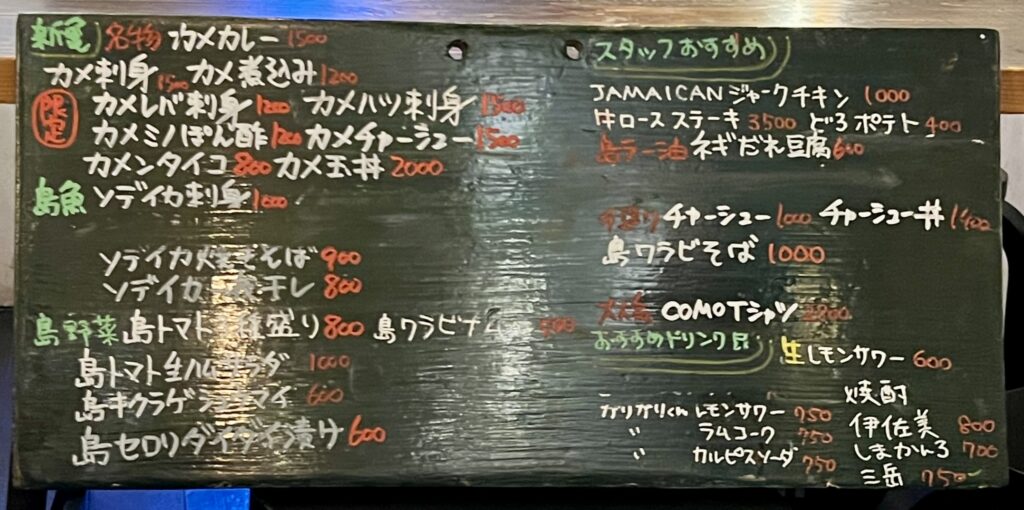 新竜 名物 カメカレー 1500
カメ刺身 1500 カメ煮込み 1200
限定 カメレバ刺身 1200 カメハツ刺身 1500
カメミノぽん酢 1200 カメチャーシュー 1500
カメンタイコ 800 カメ玉丼 2000
島魚 ソデイカ刺身 1000
ソデイカ焼きそば 900
ソデイカ 干し 800
島野菜 島トマト 盛り 800 島ワラビナムル
島トマト生ハムサラダ 1000
島キクラゲ 600
島セロリダイダイ漬け 600
スタッフおすすめ
JAMAICAN ジャークチキン 1000
牛ロースステーキ 3500 どろポテト 400
島ラー油 ネギだれ豆腐 600
チャーシュー 1000 チャーシュー丼 1400
島ワラビそば 1000
COMO Tシャツ
おすすめドリンク
生レモンサワー 600
焼酎
ガリガリくん レモンサワー 750
〃 ラムコーク 750
〃 カルピスソーダ 750
伊佐美 800
しまかんろ 700
三岳 750